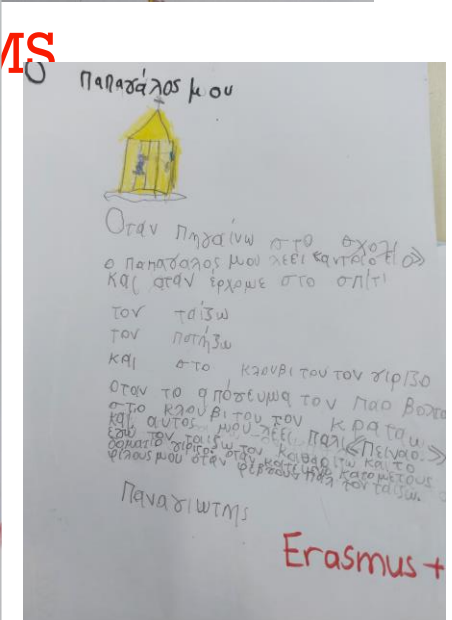 MS
Ο παπαγάλος μου
Οταν πηγαίνω στο σχολ
ο παπαγάλος μου λέει
και οταν έρχομε στο σπίτι
τον ταίζω
τον ποτήζω
και στο κλουβι του τον γιρίζο
οταν το απόγευμα τον παο βολτα
στο κλουβι του τον κραταω
και αυτος μου λέει παλι «Πειναο»
εγω τον ταίζω τον καθαρίζω και το
δοματιο γιρίζο οταν
φίλους μου οταν φέβγουν παλ τον ταιζω.
Παναγιωτης
Erasmus +